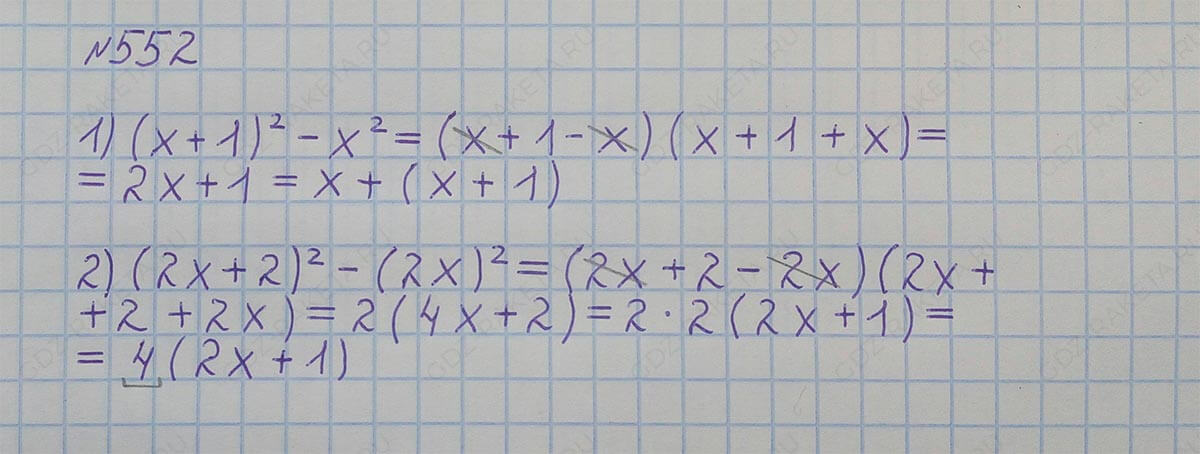 №552
1) (x+1)² - x² = (x+1-x)(x+1+x)=
= 2x+1 = x+(x+1)
2) (2x+2)² - (2x)² = (2x+2-2x)(2x+
+2+2x) = 2(4x+2) = 2·2(2x+1)=
= 4(2x+1)
GDZ-RAKETA.RU